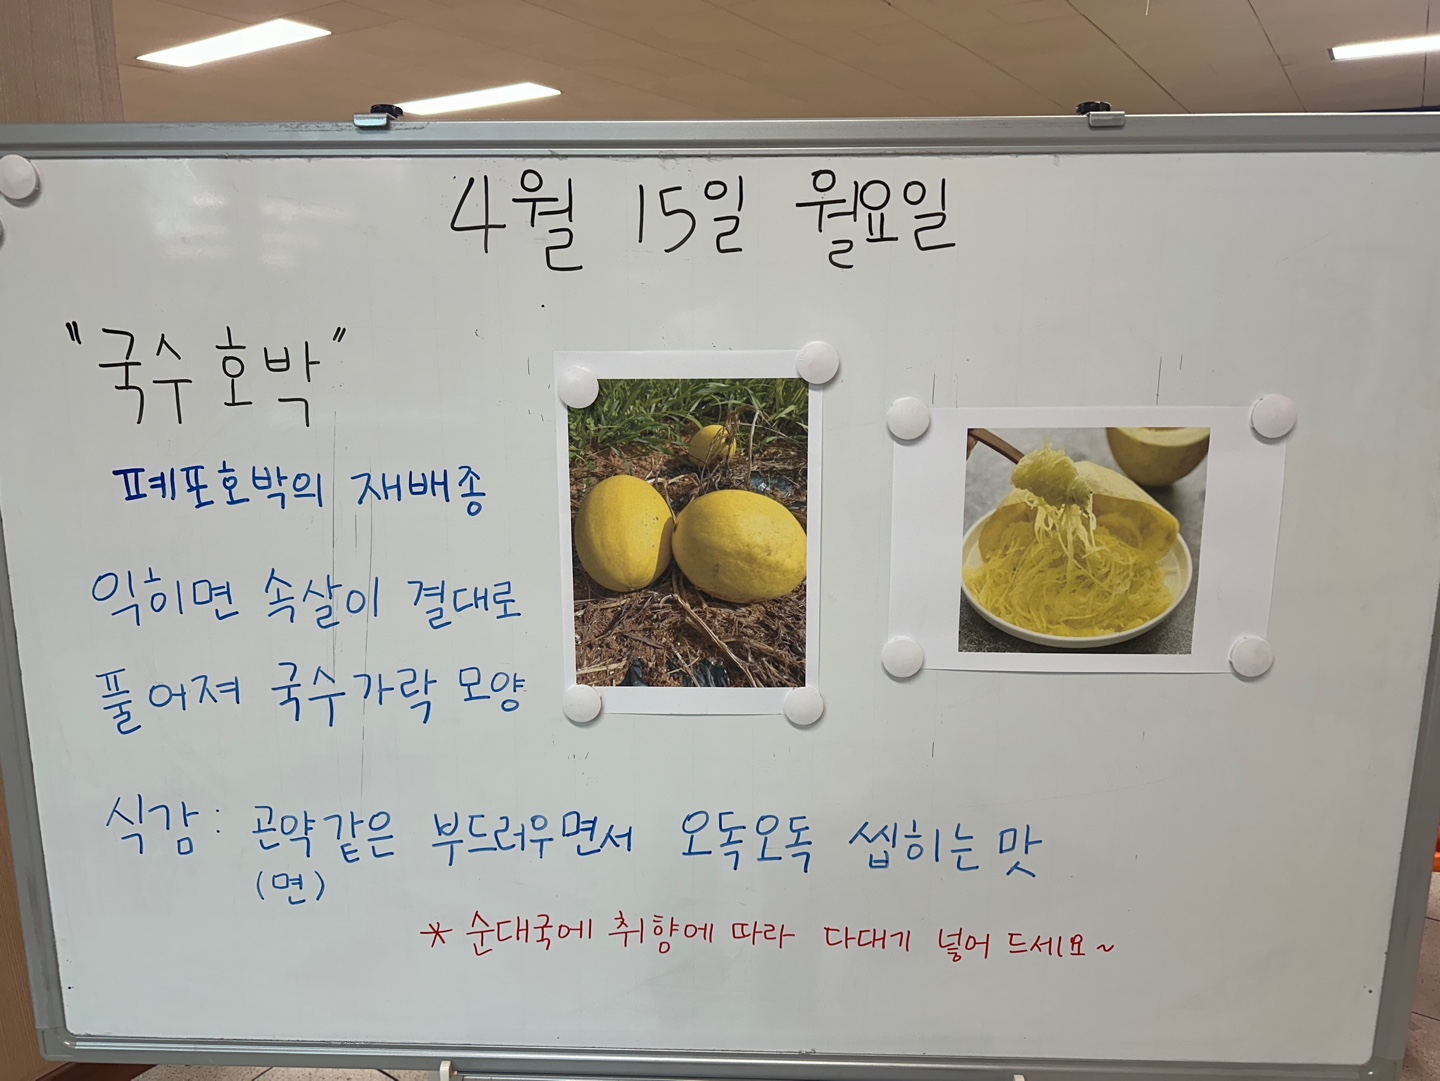 4월 15일 월요일
"국수호박"
폐포호박의 재배종
익히면 속살이 결대로
풀어져 국수가락 모양
식감: 곤약같은 부드러우면서 오독오독 씹히는 맛
(면)
* 순대국에 취향에 따라 다대기 넣어 드세요~